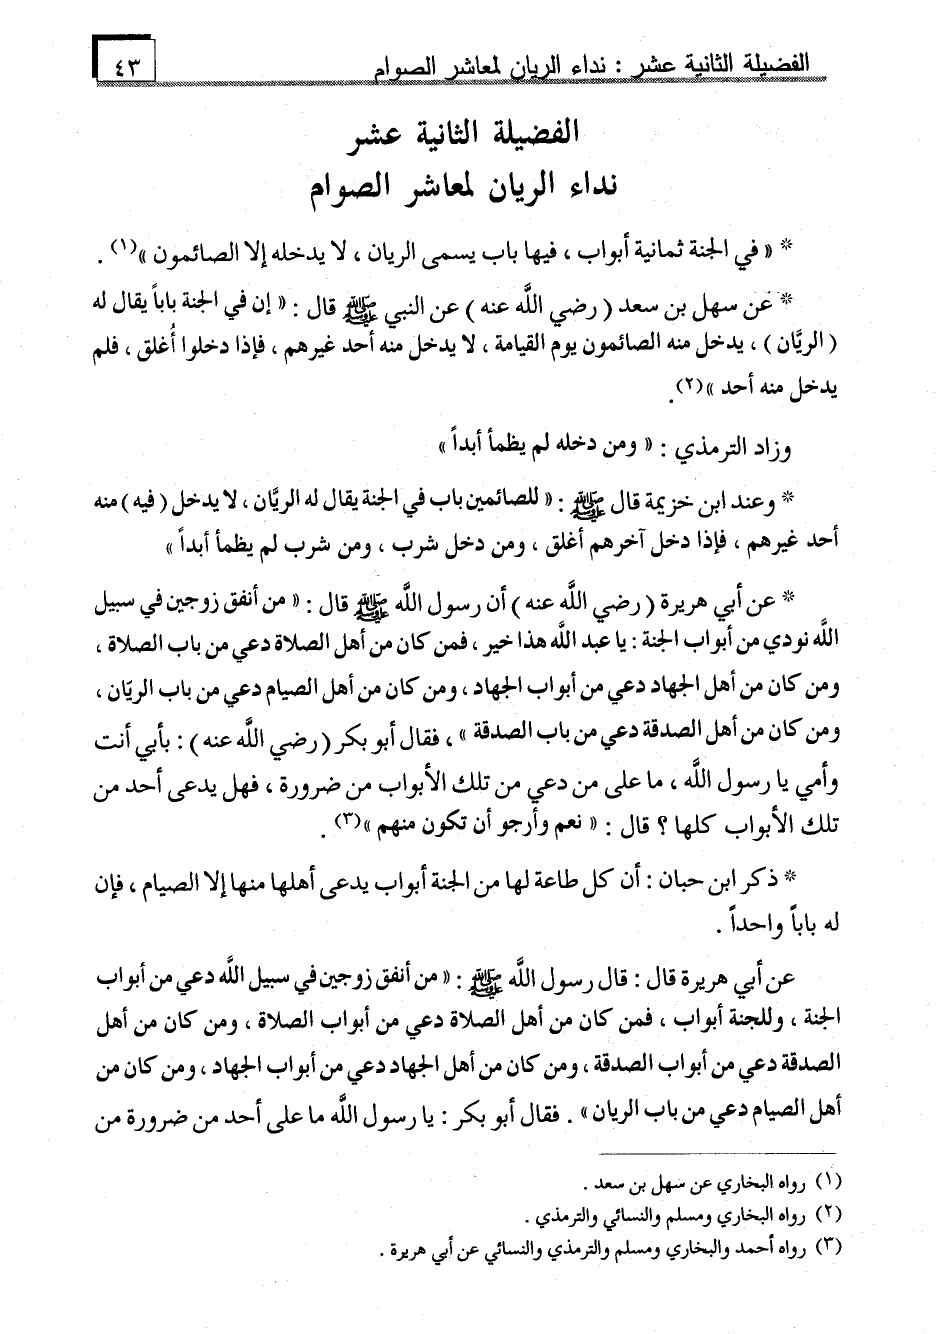 الفضيلة الثانية عشر : نداء الريان لمعاشر الصوام
٤٣
الفضيلة الثانية عشر
نداء الريان لمعاشر الصوام
* « في الجنة ثمانية أبواب ، فيها باب يسمى الريان ، لا يدخله إلا الصائمون »(١) .
* عن سهل بن سعد ( رضي اللَّه عنه ) عن النبي ﷺ قال : « إن في الجنة باباً يقال له
( الريَّان ) ، يدخل منه الصائمون يوم القيامة ، لا يدخل منه أحد غيرهم ، فإذا دخلوا أُغلق ، فلم
يدخل منه أحد »(٢).
وزاد الترمذي : « ومن دخله لم يظمأ أبداً »
* وعند ابن خزيمة قال ﷺ : « للصائمين باب في الجنة يقال له الريَّان ، لا يدخل ( فيه ) منه
أحد غيرهم ، فإذا دخل آخرهم أغلق ، ومن دخل شرب ، ومن شرب لم يظمأ أبداً »
* عن أبي هريرة ( رضي اللَّه عنه ) أن رسول اللَّه ﷺ قال : « من أنفق زوجين في سبيل
اللَّه نودي من أبواب الجنة : يا عبد اللَّه هذا خير ، فمن كان من أهل الصلاة دعي من باب الصلاة ،
ومن كان من أهل الجهاد دعي من أبواب الجهاد ، ومن كان من أهل الصيام دعي من باب الريّان ،
ومن كان من أهل الصدقة دعي من باب الصدقة » ، فقال أبو بكر ( رضي اللَّه عنه ) : بأبي أنت
وأمي يا رسول اللَّه ، ما على من دعي من تلك الأبواب من ضرورة ، فهل يدعى أحد من
تلك الأبواب كلها ؟ قال : « نعم وأرجو أن تكون منهم »(٣) .
* ذكر ابن حبان : أن كل طاعة لها من الجنة أبواب يدعى أهلها منها إلا الصيام ، فإن
له باباً واحداً .
عن أبي هريرة قال : قال رسول اللَّه ﷺ : « من أنفق زوجين في سبيل اللَّه دعي من أبواب
الجنة ، وللجنة أبواب ، فمن كان من أهل الصلاة دعي من أبواب الصلاة ، ومن كان من أهل
الصدقة دعي من أبواب الصدقة ، ومن كان من أهل الجهاد دعي من أبواب الجهاد ، ومن كان من
أهل الصيام دعي من باب الريان » . فقال أبو بكر : يا رسول اللَّه ما على أحد من ضرورة من
(١) رواه البخاري عن سهل بن سعد .
(٢) رواه البخاري ومسلم والنسائي والترمذي .
(٣) رواه أحمد والبخاري ومسلم والترمذي والنسائي عن أبي هريرة .